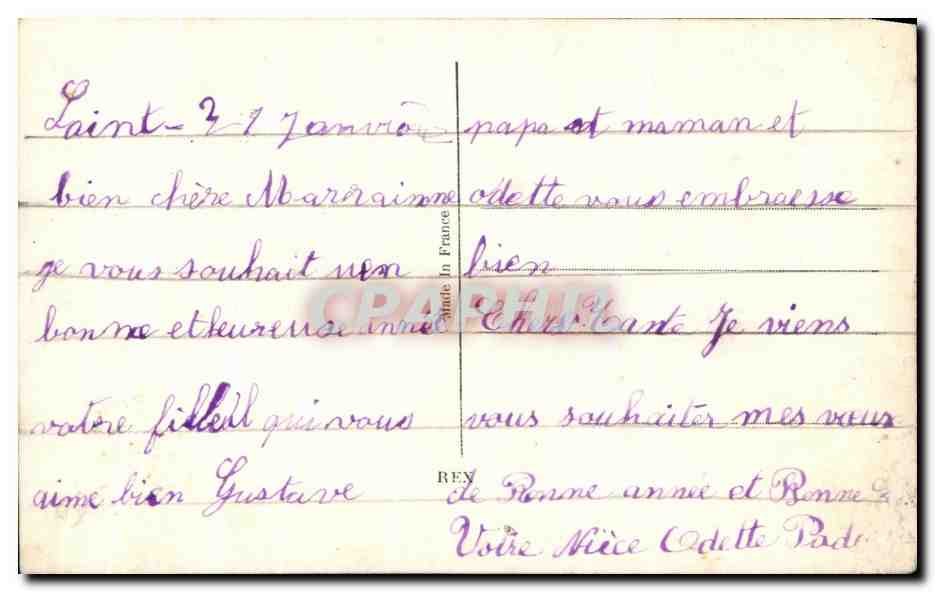 Laint - 31 Janvier
bien chère Marrainne
je vous souhait uen
bonne et heureuse année
votre filleul qui vous
aime bien Gustave
papa et maman et
odette vous embraesse
bien
Chers Tante Je viens
vous souhaiter mes vœux
de Bonne année et Bonne
Votre Nièce Odette
Made In France
REX
CPAPHIL